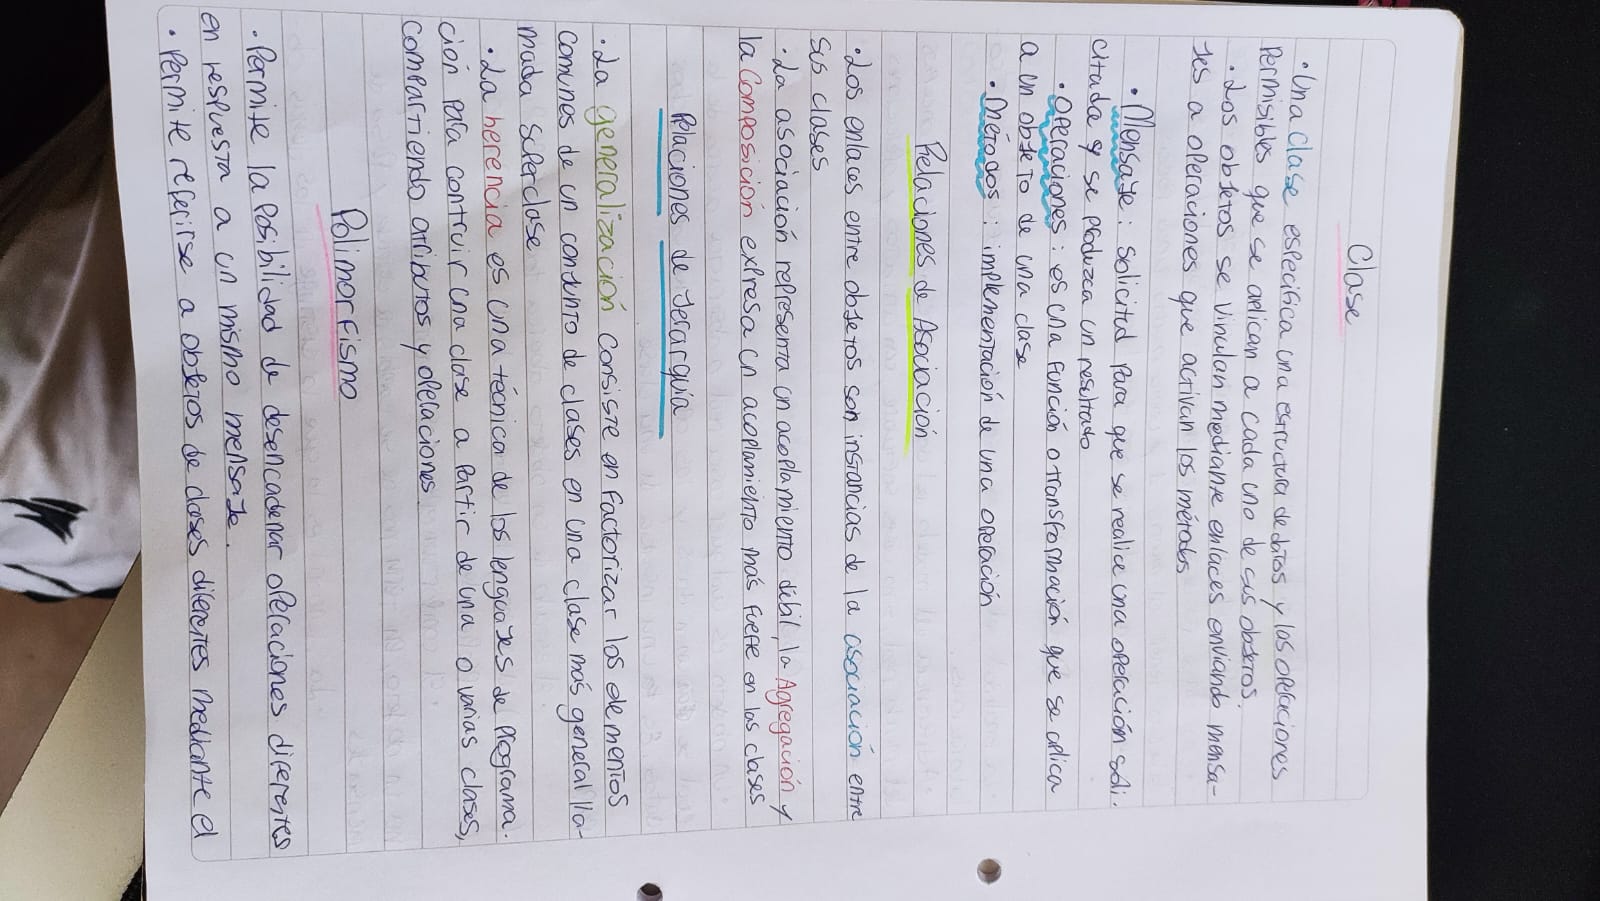 Clase
• Una Clase especifica una estructura de datos y las operaciones
Permisibles que se aplican a cada uno de sus objetos.
• Los objetos se vinculan mediante enlaces enviando mensa-
jes a operaciones que activan los métodos
• Mensaje: Solicitud para que se realice una operación soli-
citada y se produzca un resultado
• Operaciones: es una función o transformación que se aplica
a un objeto de una clase
• Métodos: implementación de una operación
Relaciones de Asociación
• Los enlaces entre objetos son instancias de la asociación entre
sus clases
• La asociación representa un acoplamiento débil, la Agregación y
la Composición expresa un acoplamiento más fuerte en las clases
Relaciones de Jerarquía
• La generalización consiste en factorizar los elementos
comunes de un conjunto de clases en una clase más general lla-
mada superclase
• La herencia es una técnica de los lenguajes de programa-
ción para contruir una clase a partir de una o varias clases,
compartiendo atributos y operaciones.
Polimorfismo
• Permite la posibilidad de desencadenar operaciones diferentes
en respuesta a un mismo mensaje.
• Permite referirse a objetos de clases diferentes mediante el